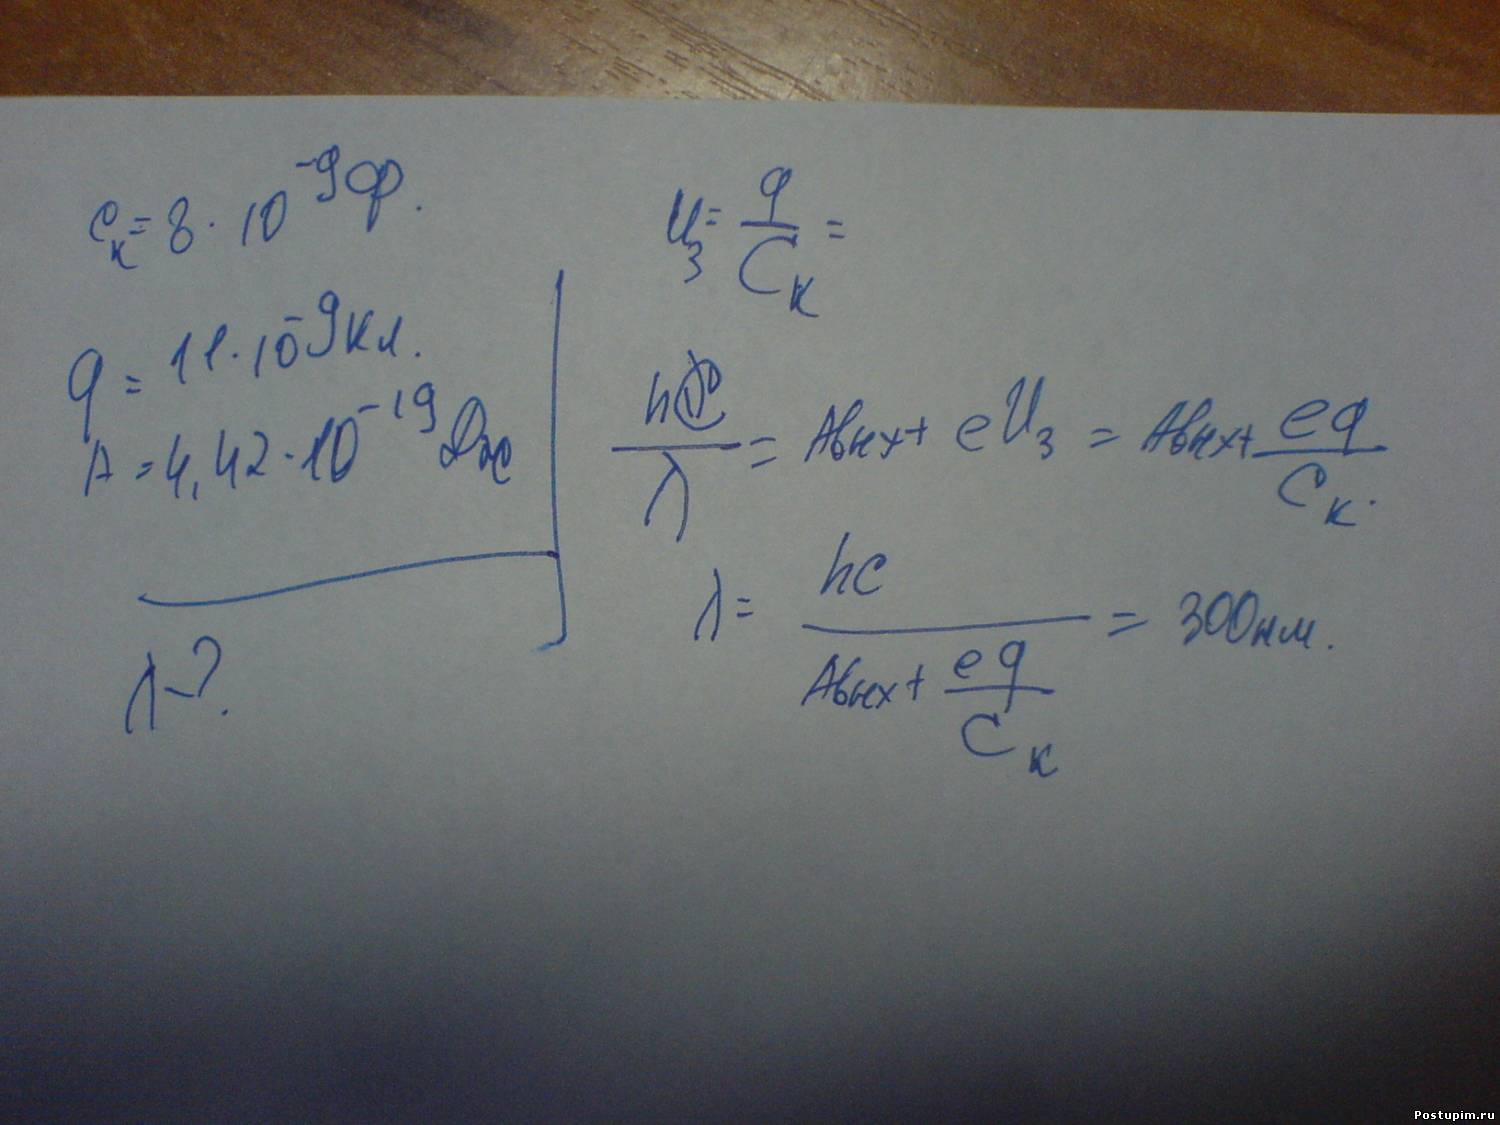 Cк = 8 · 10⁻⁹ Ф.
q = 11 · 10⁻⁹ Кл.
A = 4,42 · 10⁻¹⁹ Дж
λ - ?
Uз = q/Cк =
hc/λ = Aвых + eUз = Aвых + eq/Cк.
λ = hc/(Aвых + eq/Cк) = 300 нм.
Postupim.ru